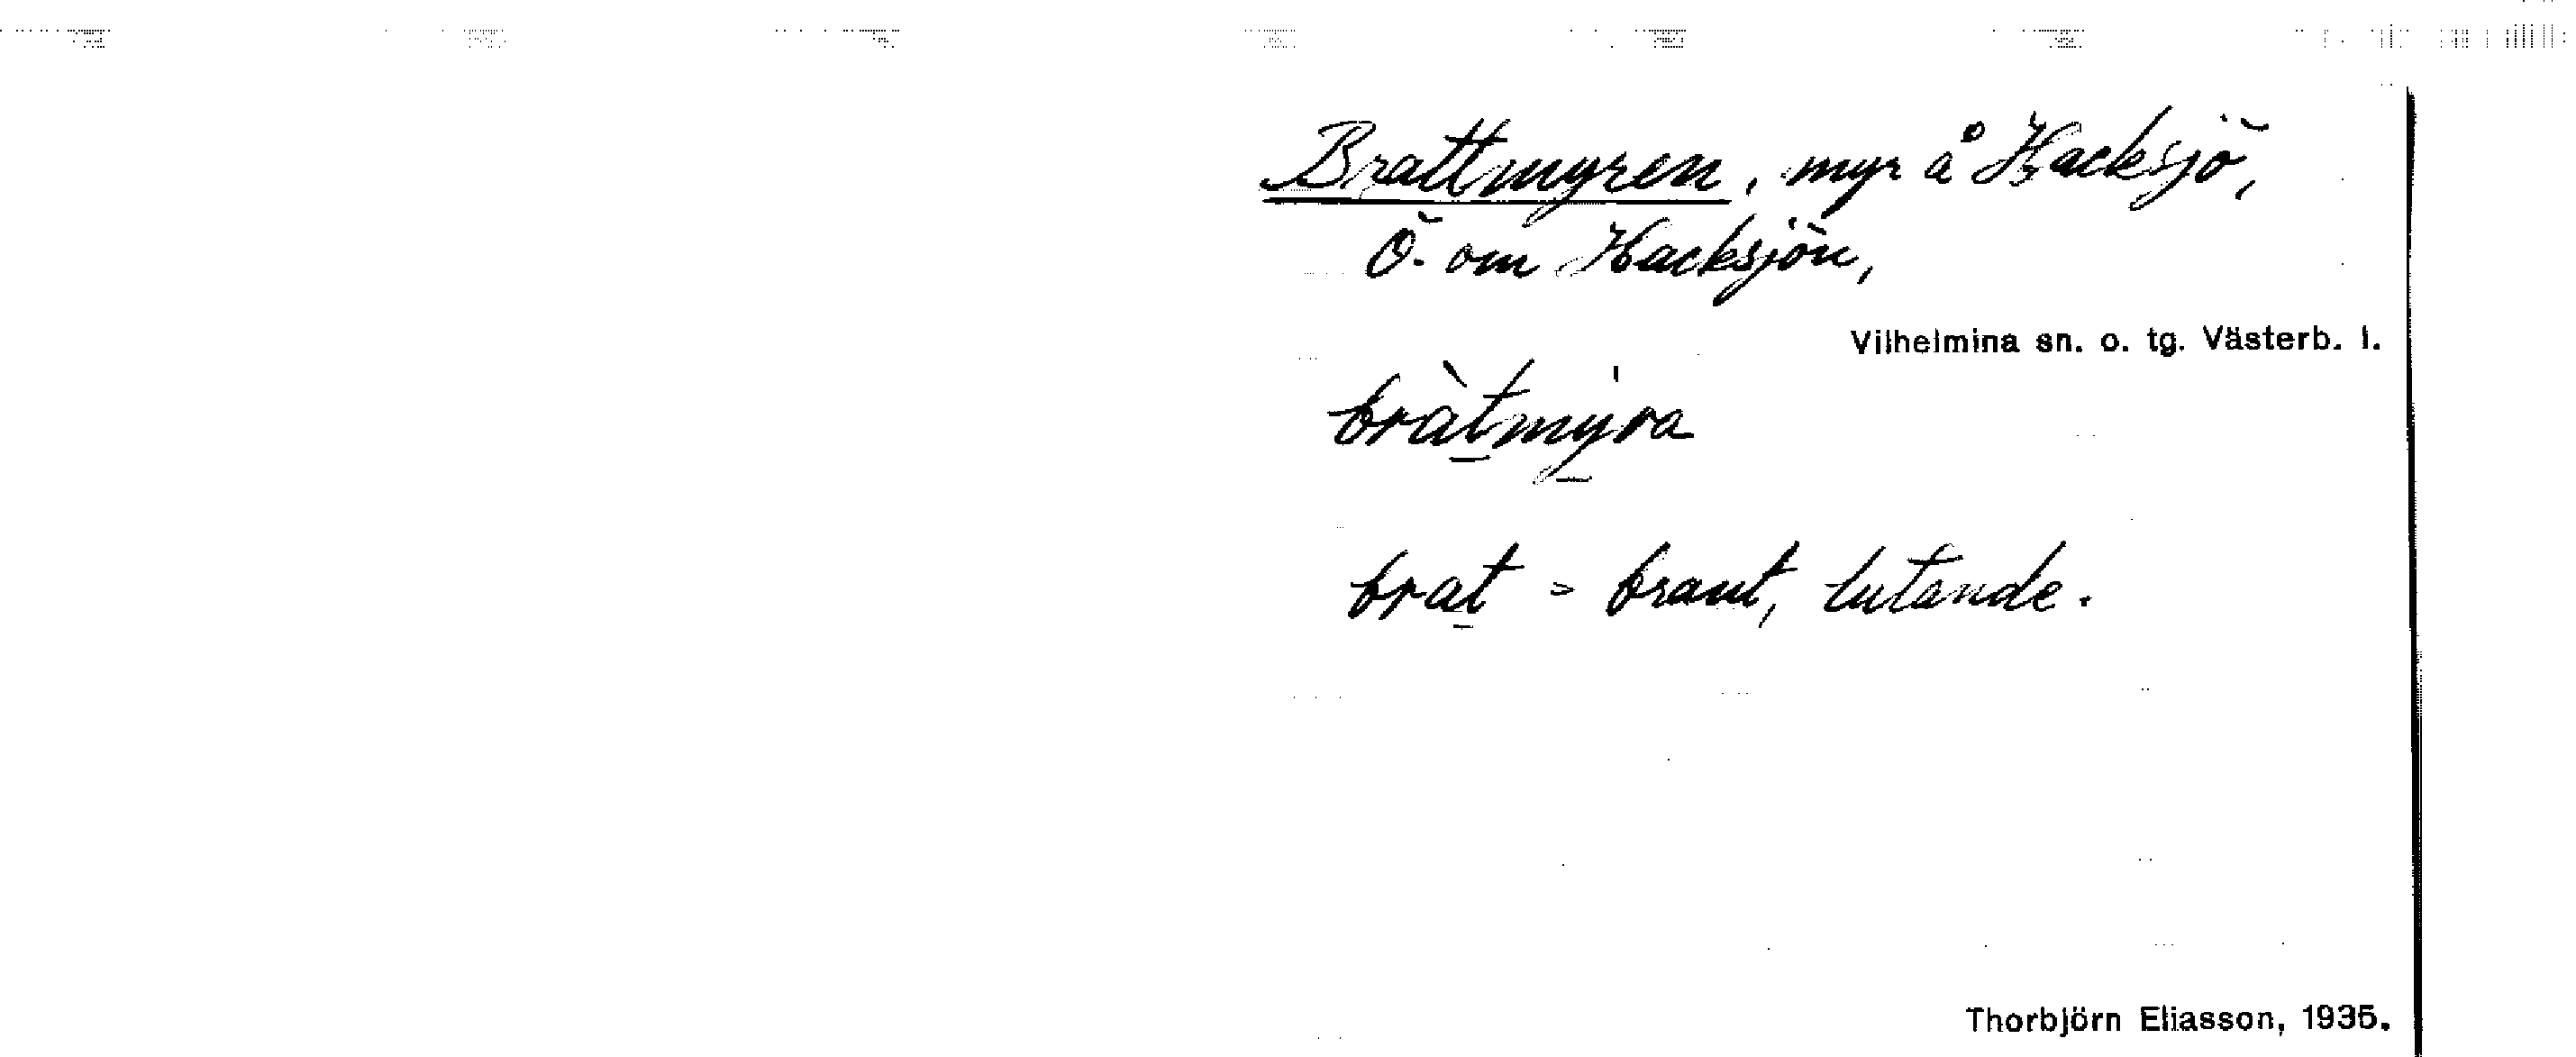 Brattmyren, myr å Hacksjö,
Ö. om Hacksjön,
Vilhelmina sn. o. tg. Västerb. l.
bràtmy̍ra
brat = brant, lutande.
Thorbjörn Eliasson, 1935.